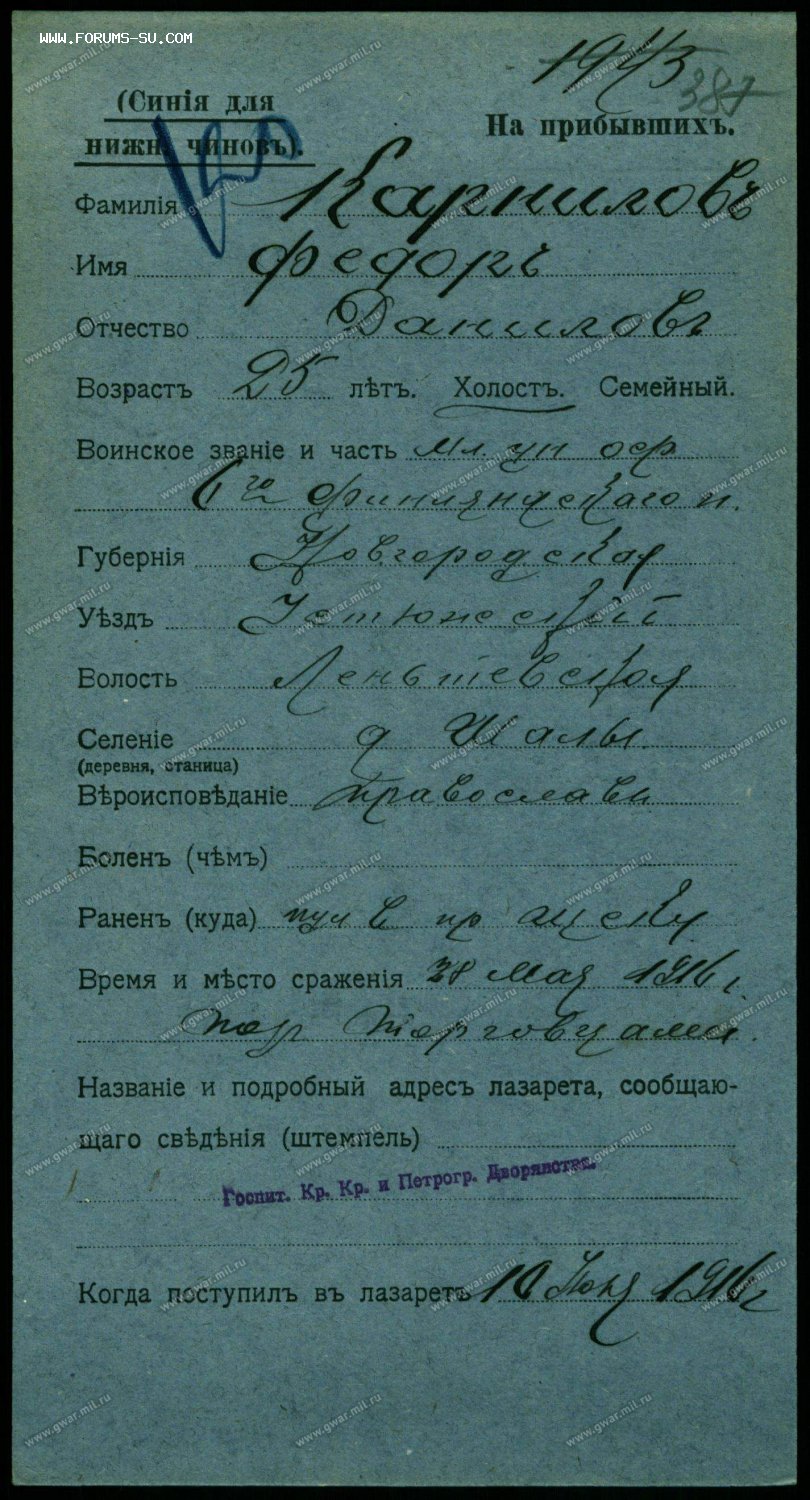 WWW.FORUMS-SU.COM
387
(Синія для
нижн. чиновъ).
На прибывшихъ.
Фамилія Карниловъ
Имя Федоръ
Отчество Даниловъ
Возрастъ 25 лѣтъ. Холостъ. Семейный.
Воинское званіе и часть мл. ун оф
6го Финляндскаго п.
Губернія Новгородская
Уѣздъ Устюжескій
Волость
Селеніе д Шалы
(деревня, станица)
Вѣроисповѣданіе православн
Боленъ (чѣмъ)
Раненъ (куда) пул в пр
Время и мѣсто сраженія 28 Мая 1916 г.
Торговцами.
Названіе и подробный адресъ лазарета, сообщаю-
щаго свѣдѣнія (штемпель)
Госпит. Кр. Кр. и Петрогр. Дворянства.
Когда поступилъ въ лазаретъ 10 Июня 1916 г
www.gwar.mil.ru